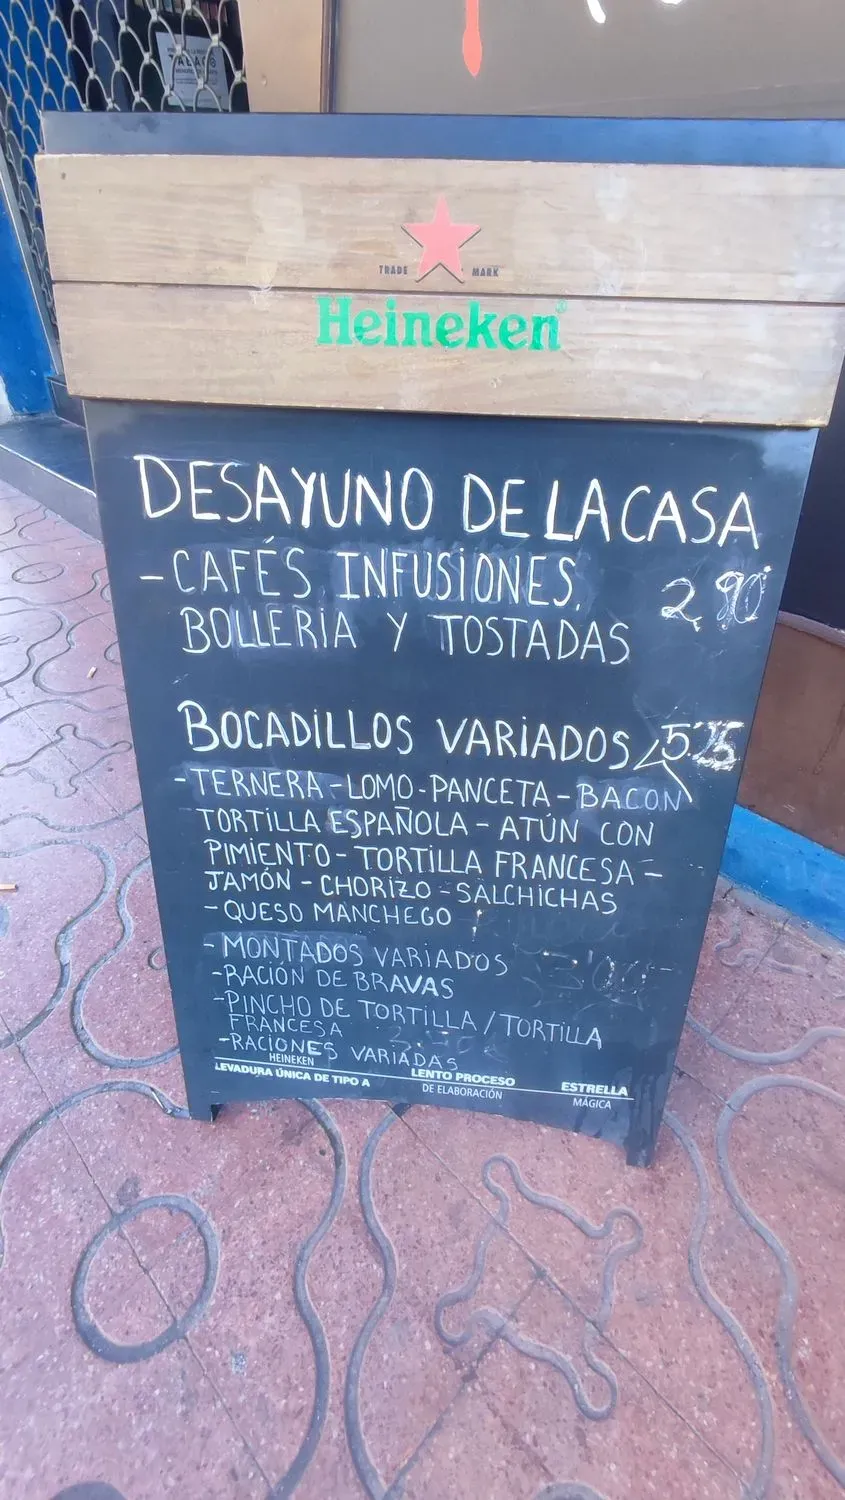 TABACO
TRADE MARK
Heineken®
DESAYUNO DE LA CASA
- CAFÉS, INFUSIONES, 2,90
BOLLERIA Y TOSTADAS
BOCADILLOS VARIADOS
- TERNERA - LOMO - PANCETA - BACON
TORTILLA ESPAÑOLA - ATÚN CON
PIMIENTO - TORTILLA FRANCESA -
JAMÓN - CHORIZO - SALCHICHAS
- QUESO MANCHEGO
- MONTADOS VARIADOS
- RACIÓN DE BRAVAS
- PINCHO DE TORTILLA / TORTILLA
FRANCESA
- RACIONES VARIADAS
HEINEKEN
LEVADURA ÚNICA DE TIPO A
LENTO PROCESO
DE ELABORACIÓN
ESTRELLA
MÁGICA